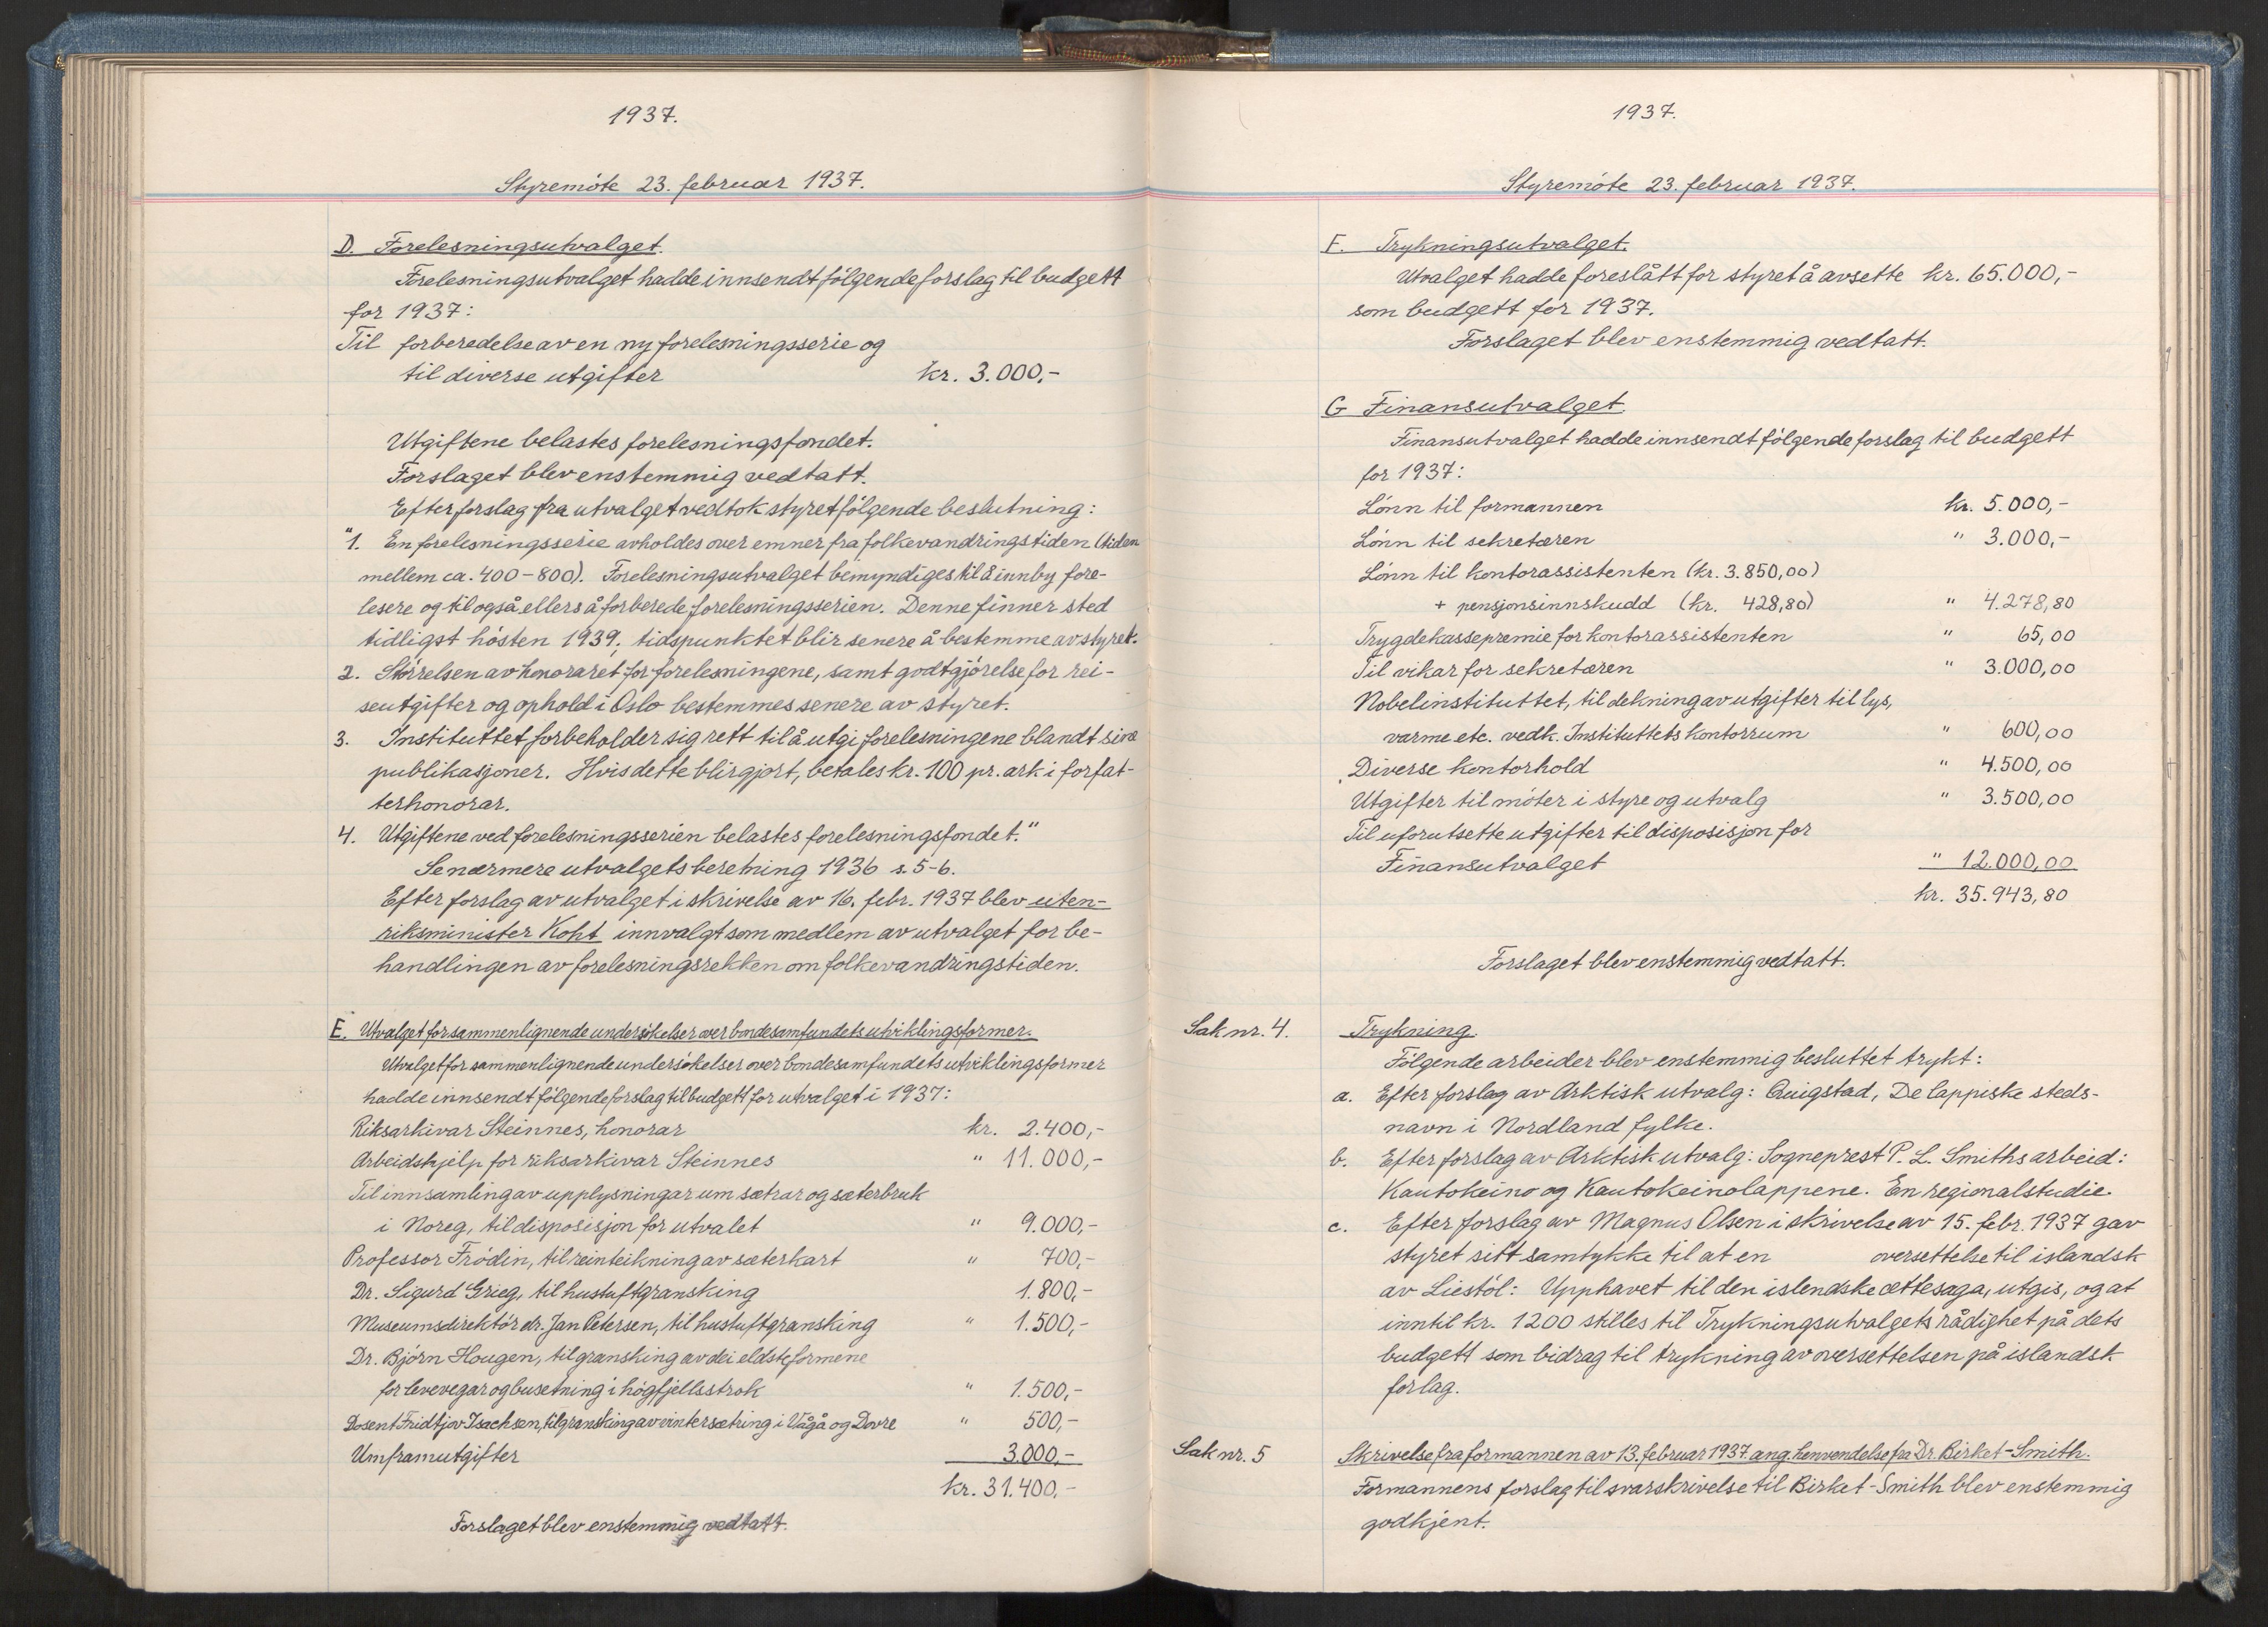 1937.
Styremöte 23. februar 1937.
D. Forelesningsutvalget.
Forelesningsutvalget hadde innsendt fölgende forslag til budgett
for 1937:
Til forberedelse av en ny forelesningsserie og
til diverse utgifter kr. 3.000,-
Utgiftene belastes forelesningsfondet.
Forslaget blev enstemmig vedtatt.
Efter forslag fra utvalget vedtok styret fölgende beslutning:
"1. En forelesningsserie avholdes over emner fra folkevandringstiden (tiden
mellem ca. 400-800). Forelesningsutvalget bemyndiges til å innby fore-
lesere og til også ellers å forberede forelesningsserien. Denne finner sted
tidligst hösten 1939; tidspunktet blir senere å bestemme av styret.
2. Störrelsen av honoraret for forelesningene, samt godtgjörelse for rei-
seutgifter og ophold i Oslo bestemmes senere av styret.
3. Instituttet forbeholder sig rett til å utgi forelesningene blandt sine
publikasjoner. Hvis dette blir gjort, betales kr. 100 pr. ark i forfat-
terhonorar.
4. Utgiftene ved forelesningsserien belastes forelesningsfondet."
Se nærmere utvalgets beretning 1936 s. 5-6.
Efter forslag av utvalget i skrivelse av 16. febr. 1937 blev uten-
riksminister Koht innvalgt som medlem av utvalget for be-
handlingen av forelesningsrekken om folkevandringstiden.
E. Utvalget for sammenlignende undersökelser over bondesamfundets utviklingsformer.
Utvalget for sammenlignende undersökelser over bondesamfundets utviklingsformer
hadde innsendt fölgende forslag til budgett for utvalget i 1937:
Riksarkivar Steinnes, honorar kr. 2.400,-
Arbeidshjelp for riksarkivar Steinnes " 11.000,-
Til innsamling av upplysningar um sætrar og sæterbruk
i Noreg, til disposisjon for utvalet " 9.000,-
Professor Frödin, til reinteikning av sæterkart " 700,-
Dr. Sigurd Grieg, til hustuftgransking 1.800,-
Museumsdirektör dr. Jan Petersen, til hustuftgransking " 1.500,-
Dr. Björn Hougen, til gransking av dei eldste formene
for levevegar og busetning i högfjellsstrok " 1.500,-
Dosent Fridtjov Isachsen, til gransking av vintersætring i Vågå og Dovre " 500,-
Umframutgifter 3.000.-
kr. 31.400.-
Forslaget blev enstemmig vedtatt.
1937.
Styremöte 23. februar 1937.
F. Trykningsutvalget.
Utvalget hadde foreslått for styret å avsette kr. 65.000,-
som budgett for 1937.
Forslaget blev enstemmig vedtatt.
G Finansutvalget.
Finansutvalget hadde innsendt fölgende forslag til budgett
for 1937:
Lönn til formannen kr. 5.000,-
Lönn til sekretæren " 3.000,-
Lönn til kontorassistenten (kr. 3.850,00)
+ pensjonsinnskudd (kr. 428,80) " 4.278,80
Trygdekassepremie for kontorassistenten " 65,00
Til vikar for sekretæren " 3.000,00
Nobelinstituttet, til dekning av utgifter til lys,
varme etc. vedk. Instituttets kontorrum " 600,00
Diverse kontorhold " 4.500,00
Utgifter til möter i styre og utvalg " 3.500,00
Til uforutsette utgifter til disposisjon for
Finansutvalget " 12.000,00
kr. 35.943,80
Forslaget blev enstemmig vedtatt.
Sak nr. 4. Trykning.
Fölgende arbeider blev enstemmig besluttet trykt:
a. Efter forslag av Arktisk utvalg: Quigstad, De lappiske steds-
navn i Nordland fylke.
b. Efter forslag av Arktisk utvalg: Sogneprest P. L. Smiths arbeid:
Kautokeino og Kautokeinolappene. En regionalstudie.
c. Efter forslag av Magnus Olsen i skrivelse av 15. febr. 1937 gav
styret sitt samtykke til at en oversettelse til islandsk
av Liestöl: Upphavet til den islendske ættesaga, utgis, og at
inntil kr. 1200 stilles til Trykningsutvalgets rådighet på dets
budgett som bidrag til trykning av oversettelsen på islandsk
forlag.
Sak nr. 5 Skrivelse fra formannen av 13. februar 1937 ang. henvendelse fra Dr. Birket-Smith.
Formannens forslag til svarskrivelse til Birket-Smith blev enstemmig
godkjent.